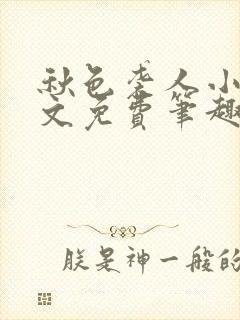 秋色老人小
文免費筆趣
朕是神一般的